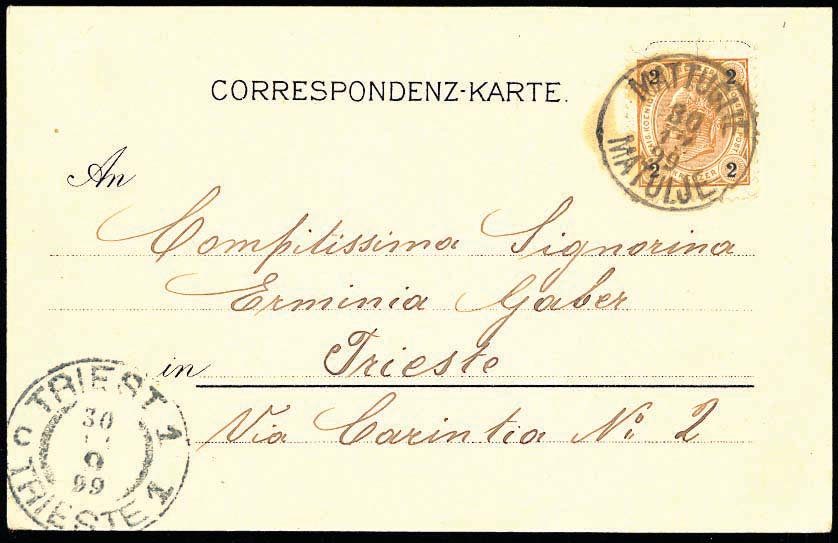 CORRESPONDENZ-KARTE.
2 2
2 2
MATTUGLIE
30
99
MATULJE
An
Compitissima Signorina
Erminia Gaber
in Trieste
Via Carintia No: 2
TRIEST 1
30
9
99
TRIESTE 1